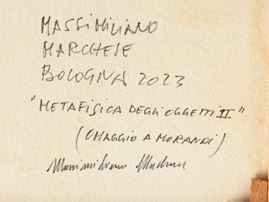 MASSIMILIANO
MARCHESE
BOLOGNA 2023
"METAFISICA DEGLI OGGETTI II"
(OMAGGIO A MORANDI)
Massimiliano Marchese